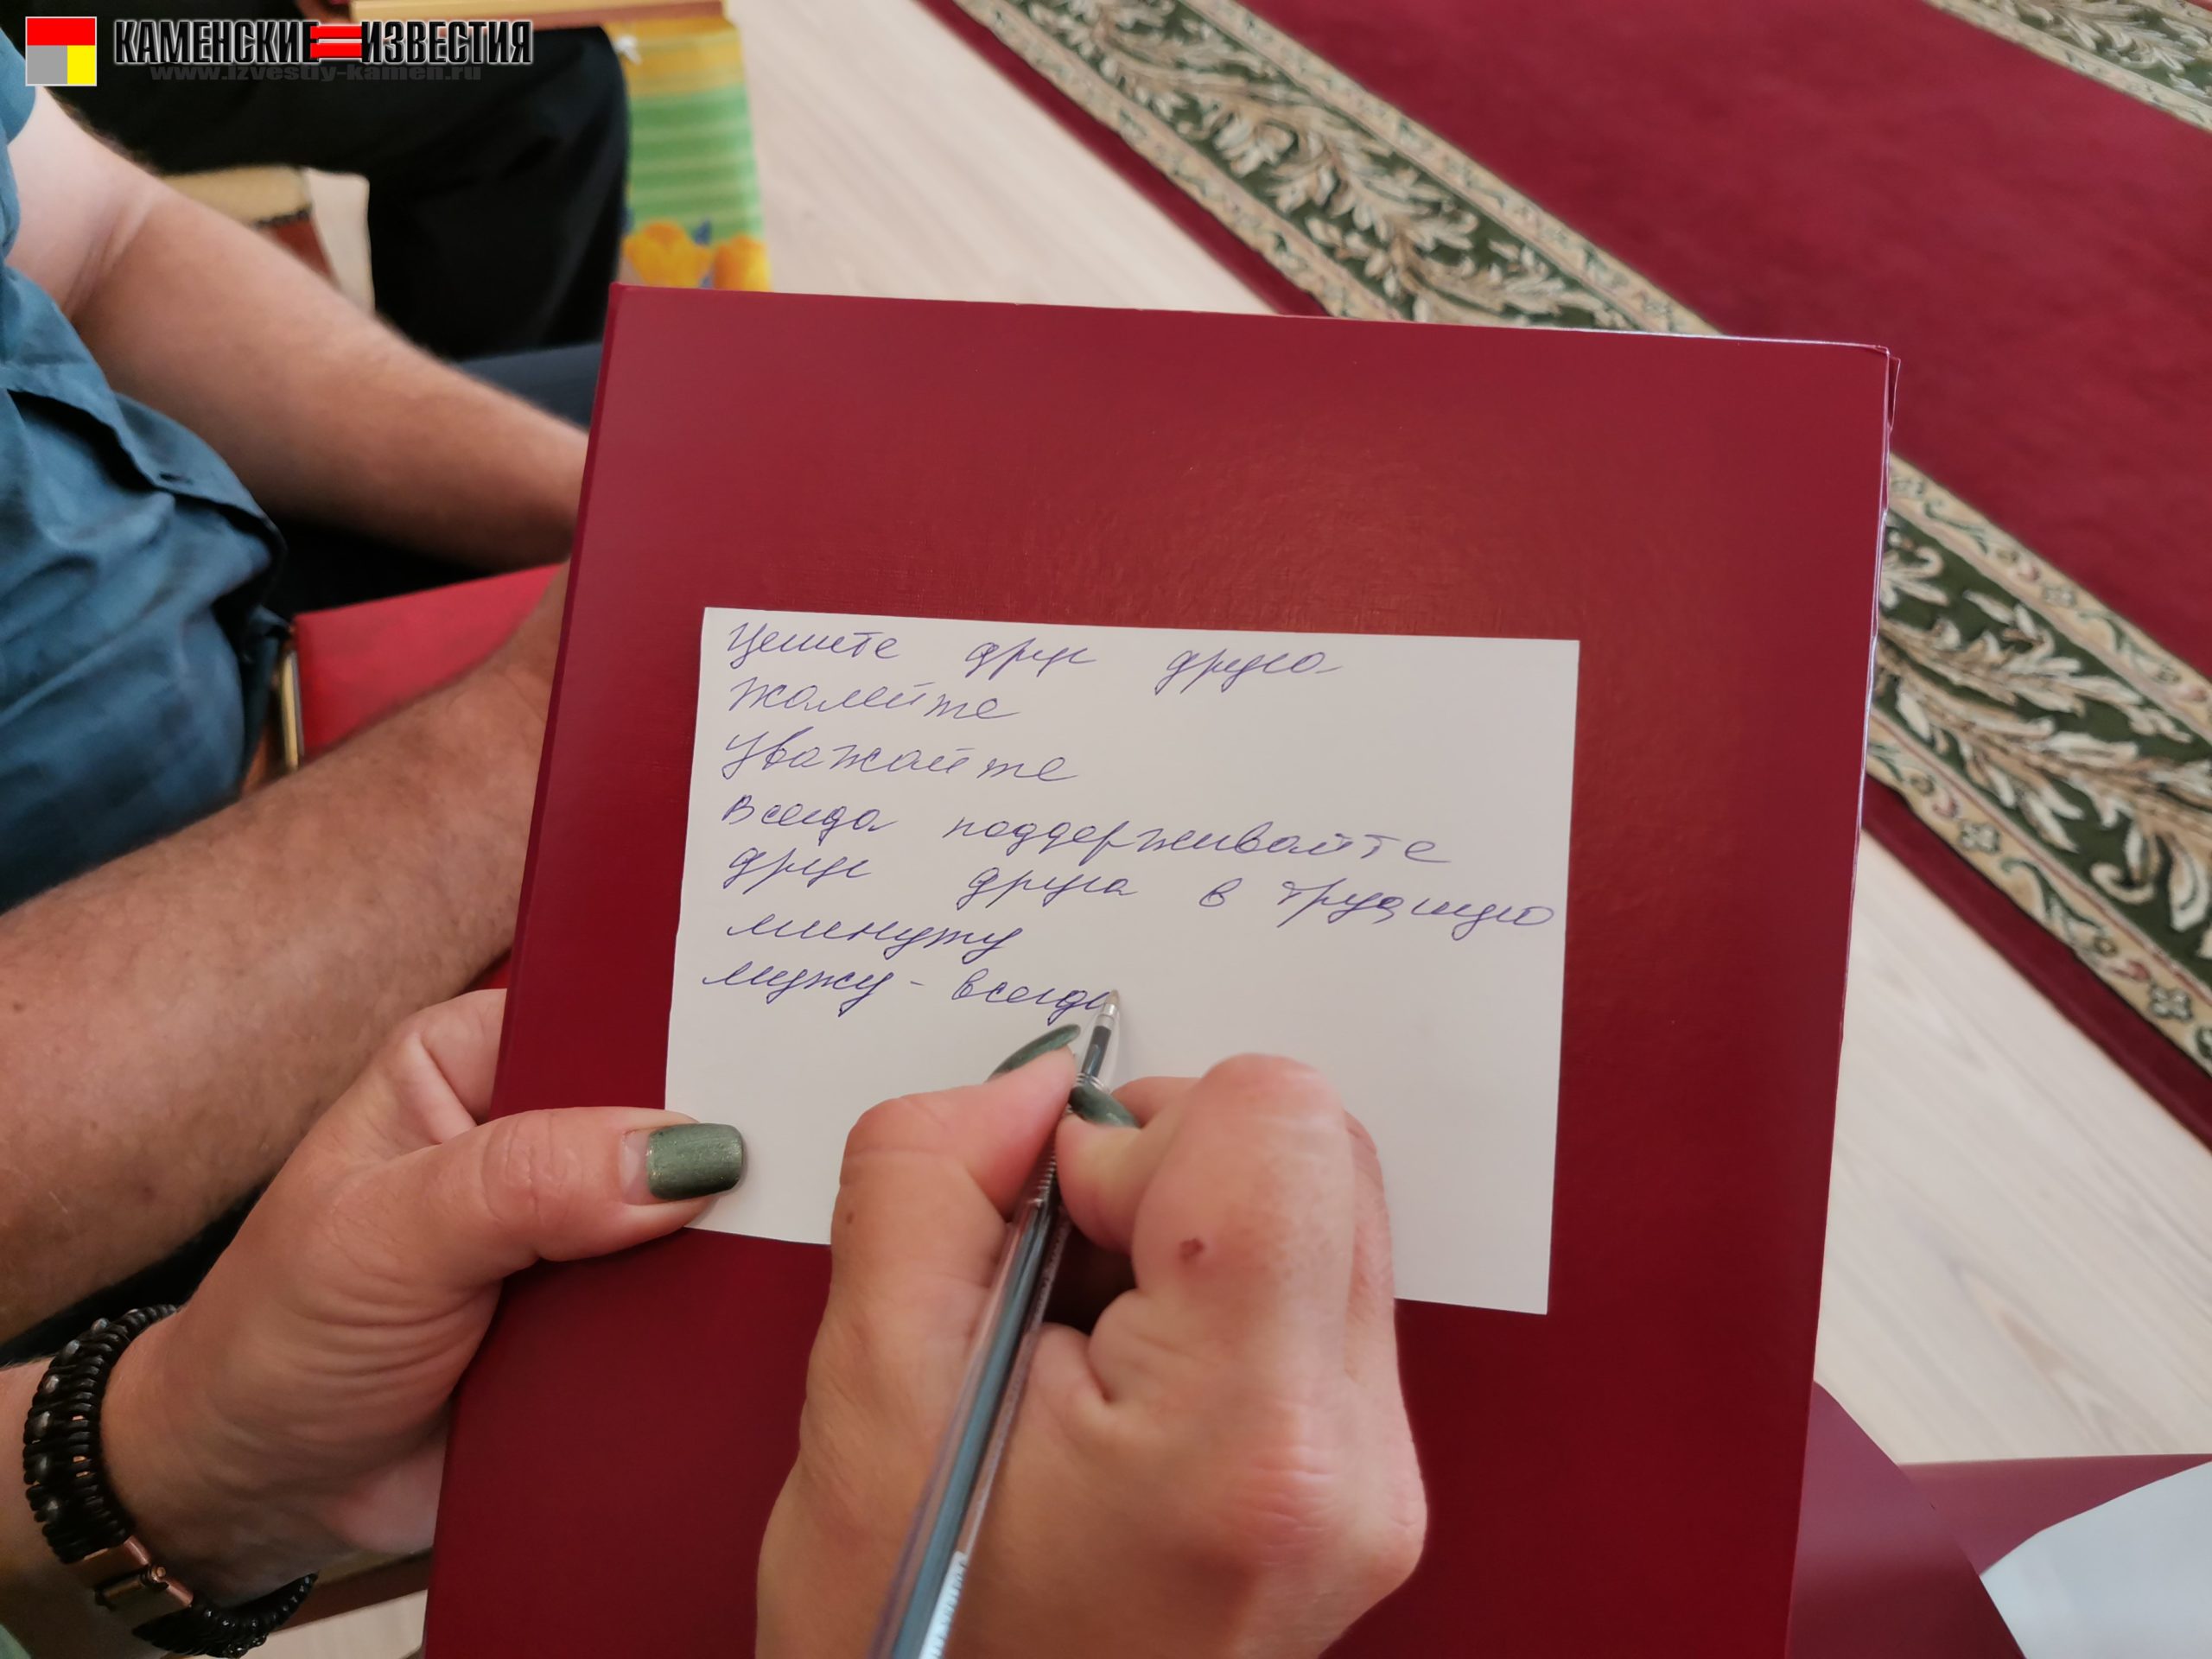 КАМЕНСКИЕ ИЗВЕСТИЯ
www.izvestiy-kamen.ru
Цените друг друга
Жалейте
Уважайте
Всегда поддерживайте
друг друга в трудную
минуту
мужу - всегда